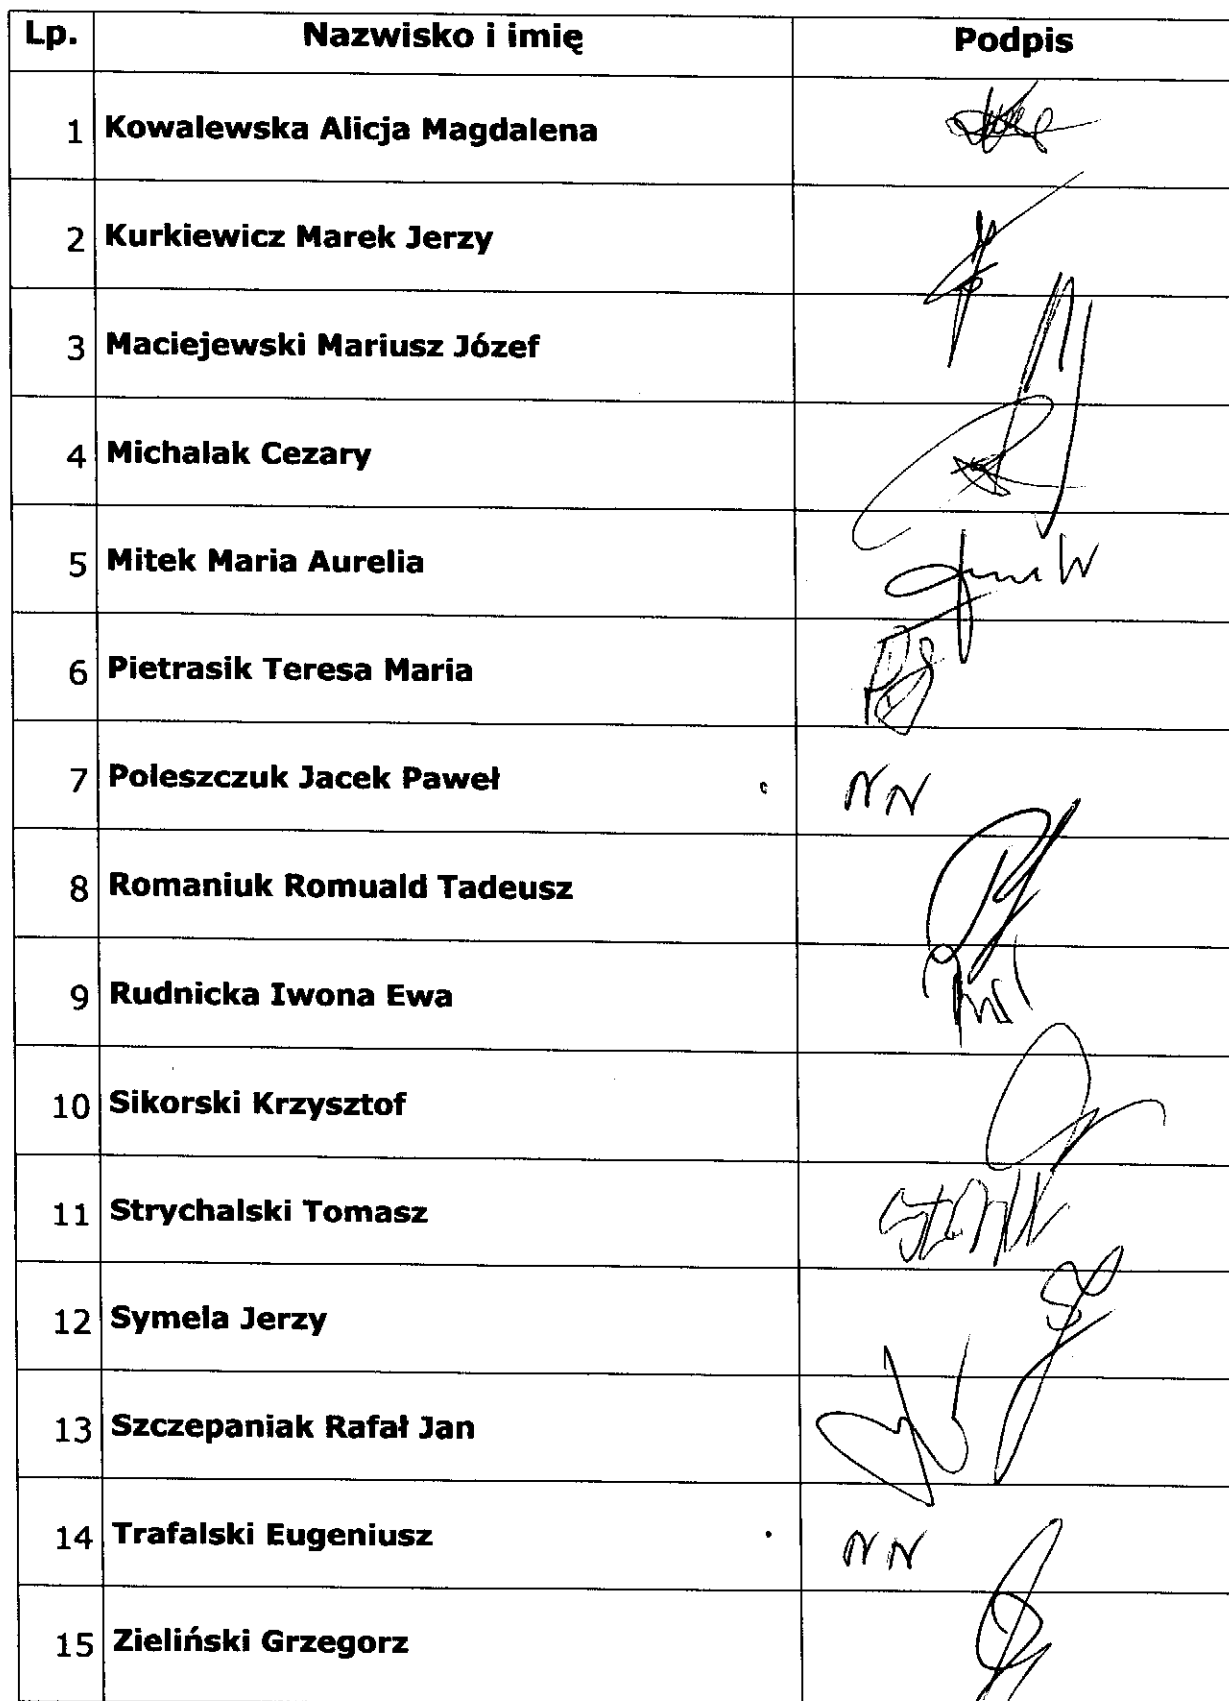 Lp. Nazwisko i imię Podpis
1 Kowalewska Alicja Magdalena
2 Kurkiewicz Marek Jerzy
3 Maciejewski Mariusz Józef
4 Michalak Cezary
5 Mitek Maria Aurelia
6 Pietrasik Teresa Maria
7 Poleszczuk Jacek Paweł NN
8 Romaniuk Romuald Tadeusz
9 Rudnicka Iwona Ewa
10 Sikorski Krzysztof
11 Strychalski Tomasz
12 Symela Jerzy
13 Szczepaniak Rafał Jan
14 Trafalski Eugeniusz NN
15 Zieliński Grzegorz